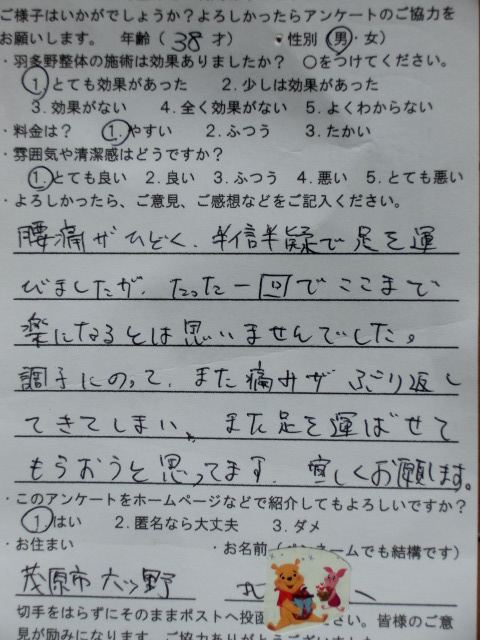 ご様子はいかがでしょうか？よろしかったらアンケートのご協力を
お願いします。 年齢（ 38 才） ・性別（男・女）
・羽多野整体の施術は効果ありましたか？ ○をつけてください。
1.とても効果があった 2.少しは効果があった
3.効果がない 4.全く効果がない 5.よくわからない
・料金は？ 1.やすい 2.ふつう 3.たかい
・雰囲気や清潔感はどうですか？
1.とても良い 2.良い 3.ふつう 4.悪い 5.とても悪い
・よろしかったら、ご意見、ご感想などをご記入ください。
腰痛がひどく、半信半疑で足を運
びましたが、たった一回でここまで
楽になるとは思いませんでした。
調子にのって、また痛みがぶり返し
てきてしまい、また足を運ばせて
もらおうと思ってます。宜しくお願します。
・このアンケートをホームページなどで紹介してもよろしいですか？
1.はい 2.匿名なら大丈夫 3.ダメ
・お住まい ・お名前（ ームでも結構です）
茂原市六ッ野
切手をはらずにそのままポストへ投函 さい。皆様のご意
見が励みになります。ご協力ありがとうございました